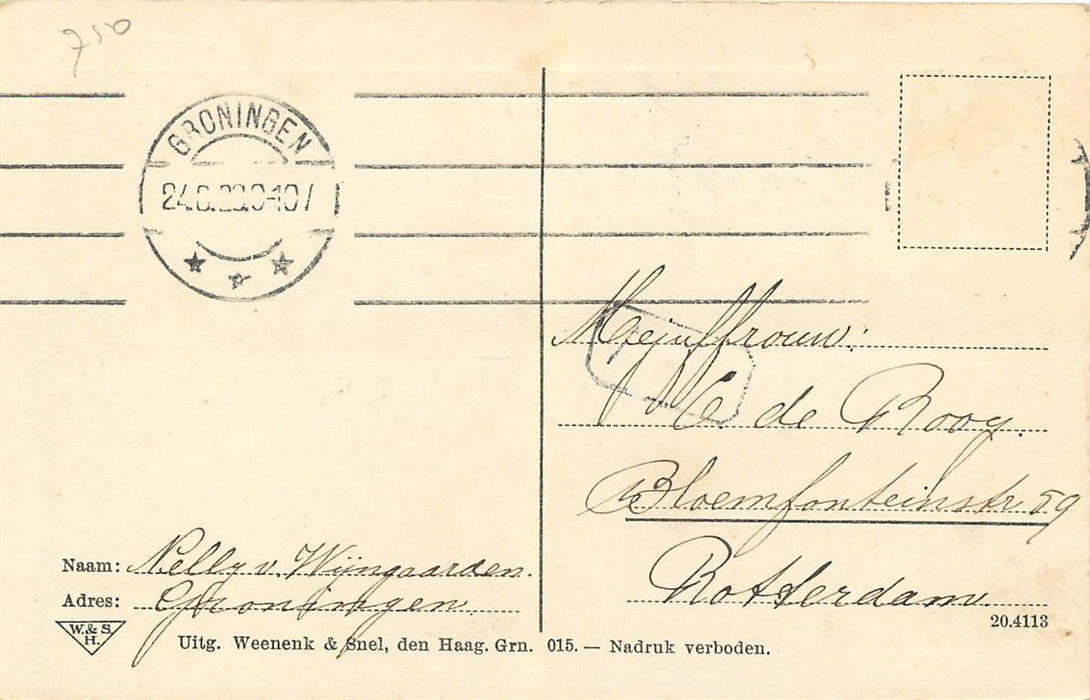 750
GRONINGEN
Mejuffrouw:
de Rooy.
Bloemfonteinstr 59
Rotterdam.
Naam: Nelly v. Wijngaarden.
Adres: Groningen
W.& S.
H.
20.4113
Uitg. Weenenk & Snel, den Haag. Grn. 015. — Nadruk verboden.